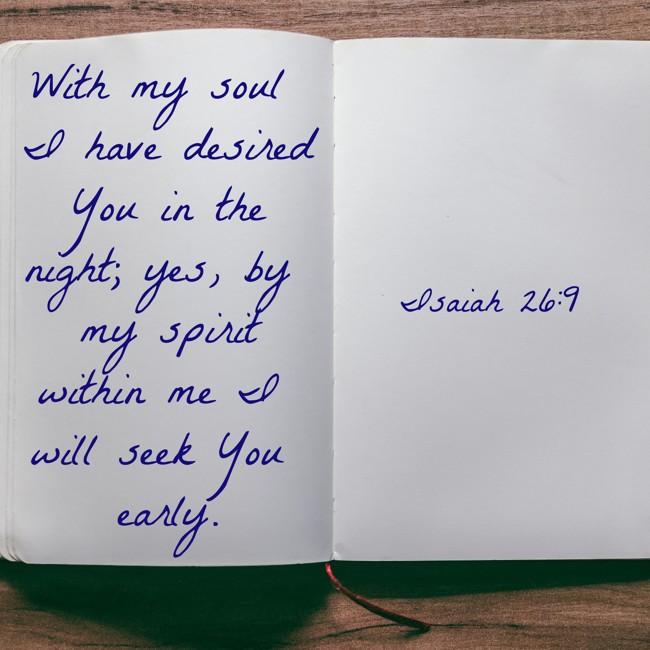 With my soul
I have desired
You in the
night; yes, by
my spirit
within me I
will seek You
early.
Isaiah 26:9